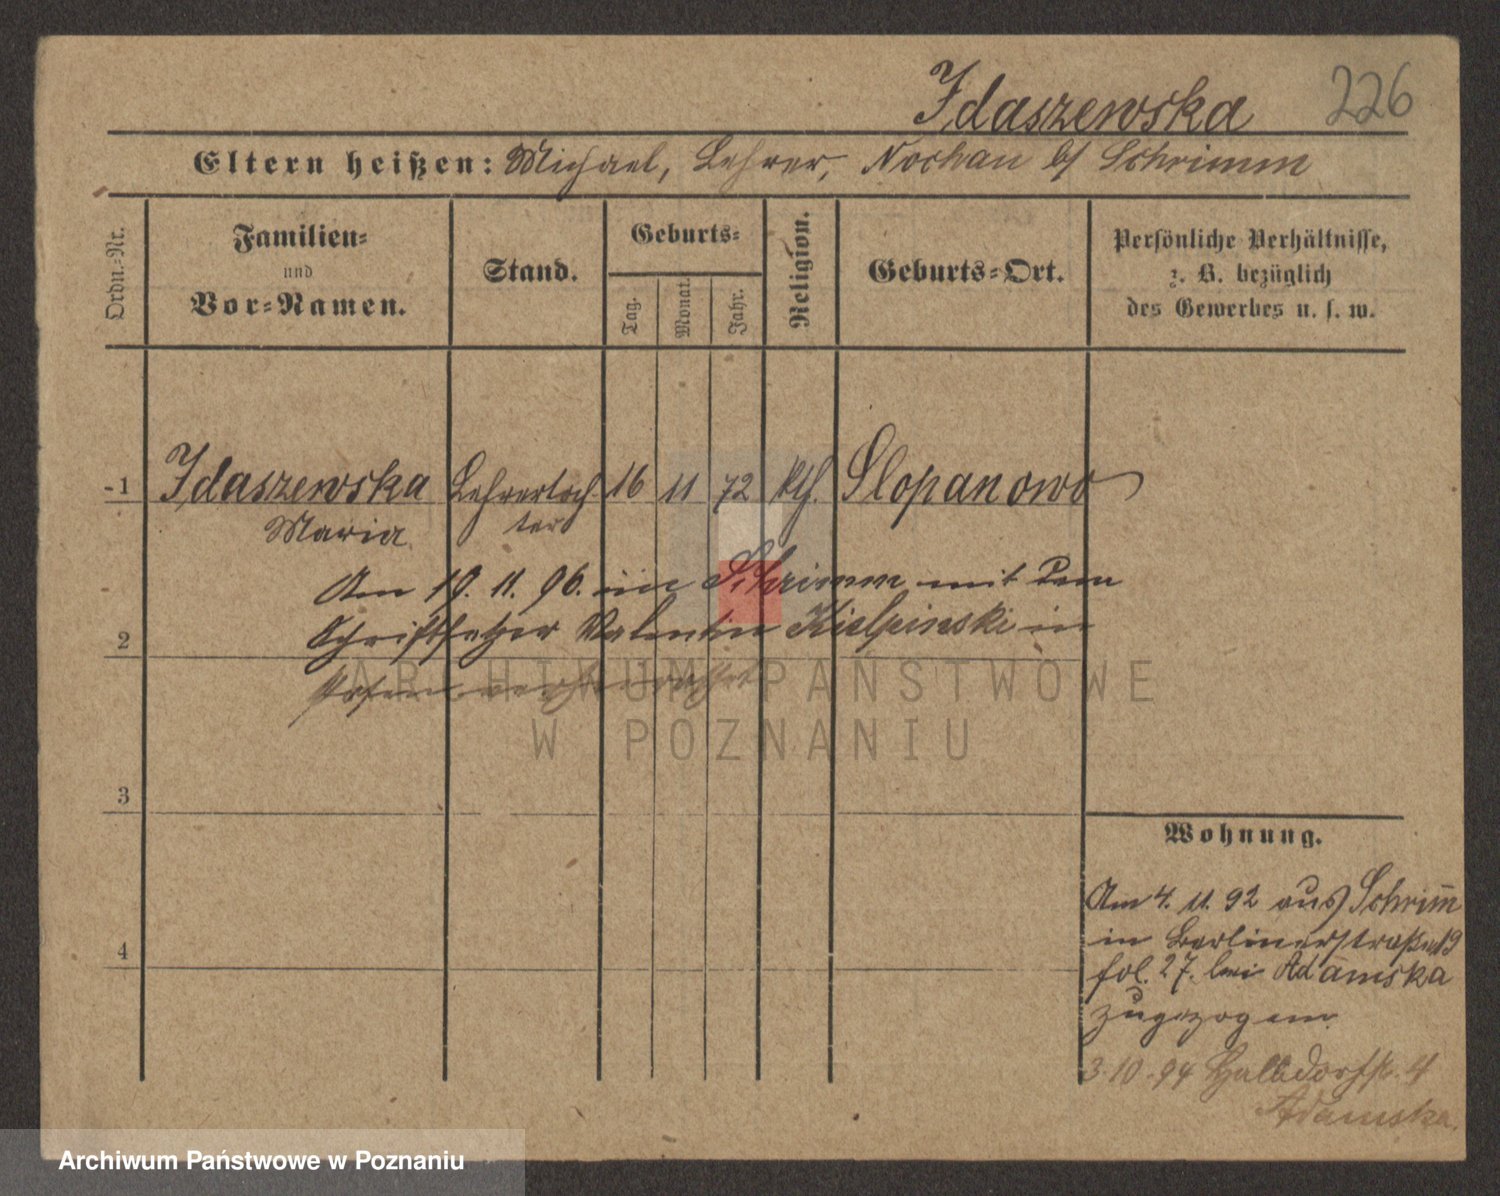 Idaszewska 226
Eltern heißen: Michael, Lehrer, Nochau b/ Schrimm
Ordn.-Nr.
Familien-
und
Vor-Namen.
Stand.
Geburts-
Tag.
Monat.
Jahr.
Religion.
Geburts-Ort.
Persönliche Verhältnisse,
z. B. bezüglich
des Gewerbes u. s. w.
1 Idaszewska Lehrertoch- 16 11 72 kth. Slopanowo
Maria ter
Am 19. 11. 96. in Schrimm mit dem
Schriftsetzer Valentin Kielpinski in
2
Posen verheirathet
ARCHIWUM PAŃSTWOWE
W POZNANIU
3
Wohnung.
Am 4. 11. 92 aus Schrim̄
in Berlinerstraße 19
4
fol. 27. bei Adamska
zugezogen.
3.10.94 Halbdorfstr. 4
Adamska.
Archiwum Państwowe w Poznaniu